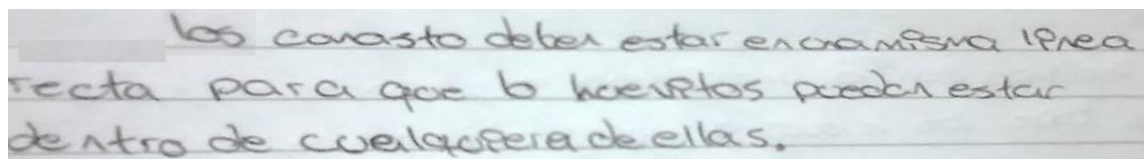 los canasto deben estar en una misma linea
recta para que lo huevitos puedan estar
dentro de cualquiera de ellas.